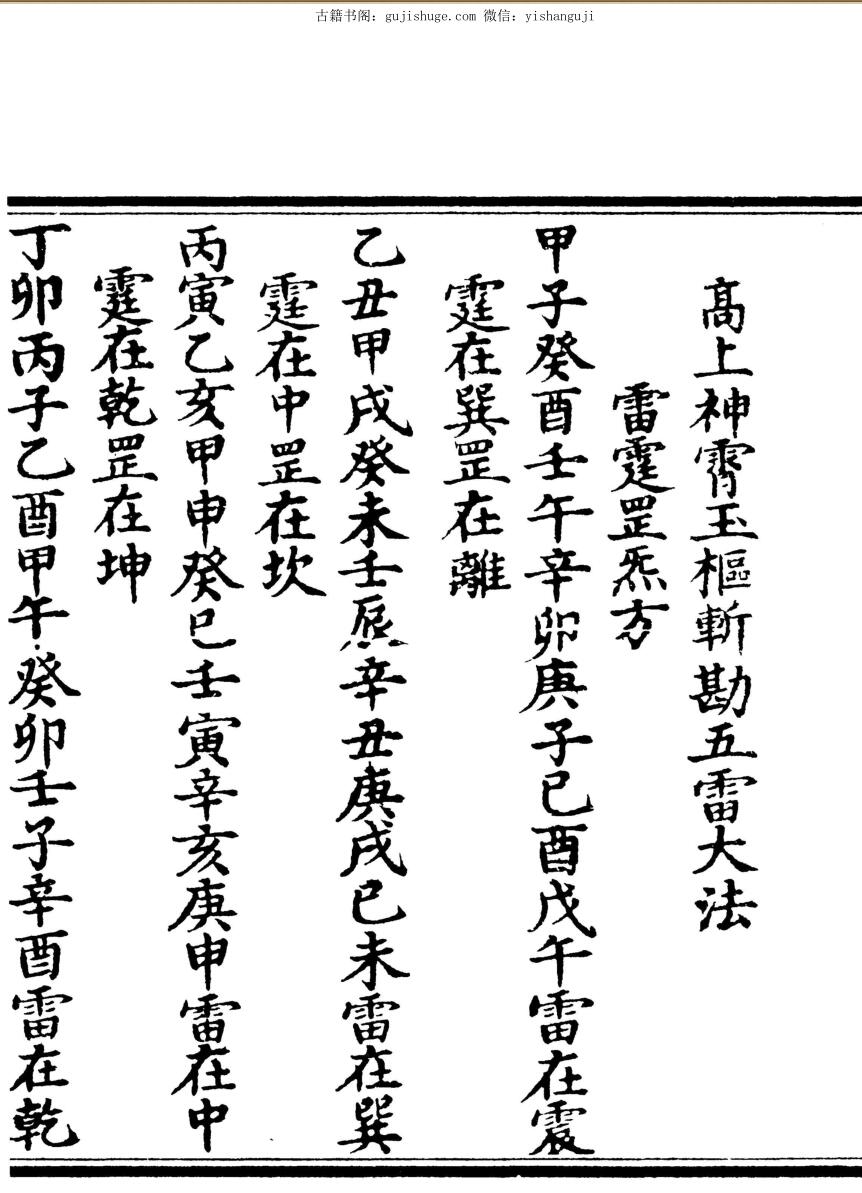 古籍书阁：gujishuge.com 微信：yishanguji
高上神霄玉樞斬勘五雷大法
雷霆罡炁方
甲子癸酉壬午辛卯庚子已酉戊午雷在震
霆在巽罡在離
乙丑甲戌癸未壬辰辛丑庚戌已未雷在巽
霆在中罡在坎
丙寅乙亥甲申癸巳壬寅辛亥庚申雷在中
霆在乾罡在坤
丁卯丙子乙酉甲午癸卯壬子辛酉雷在乾